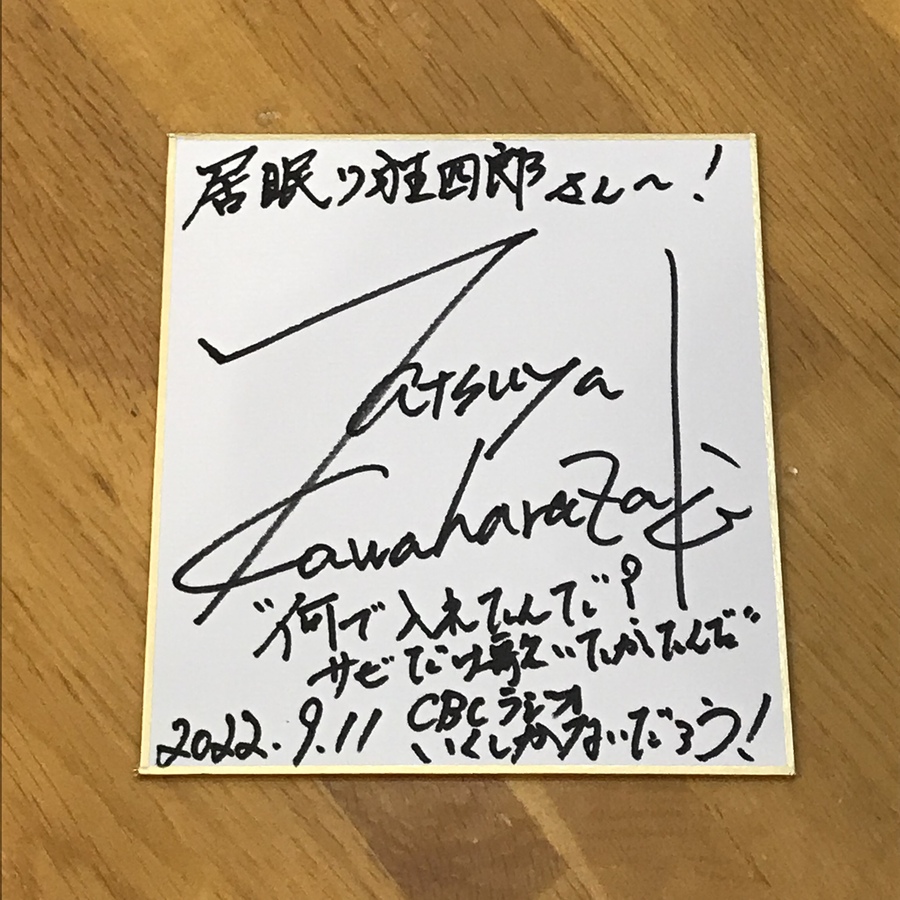 居眠り狂四郎さん〜!
Tatsuya
Kawaharazaki
"何で入れたんだ?
サビだけ歌いたかったんだ"
CBCラジオ
2022.9.11 いくしかないだろう!